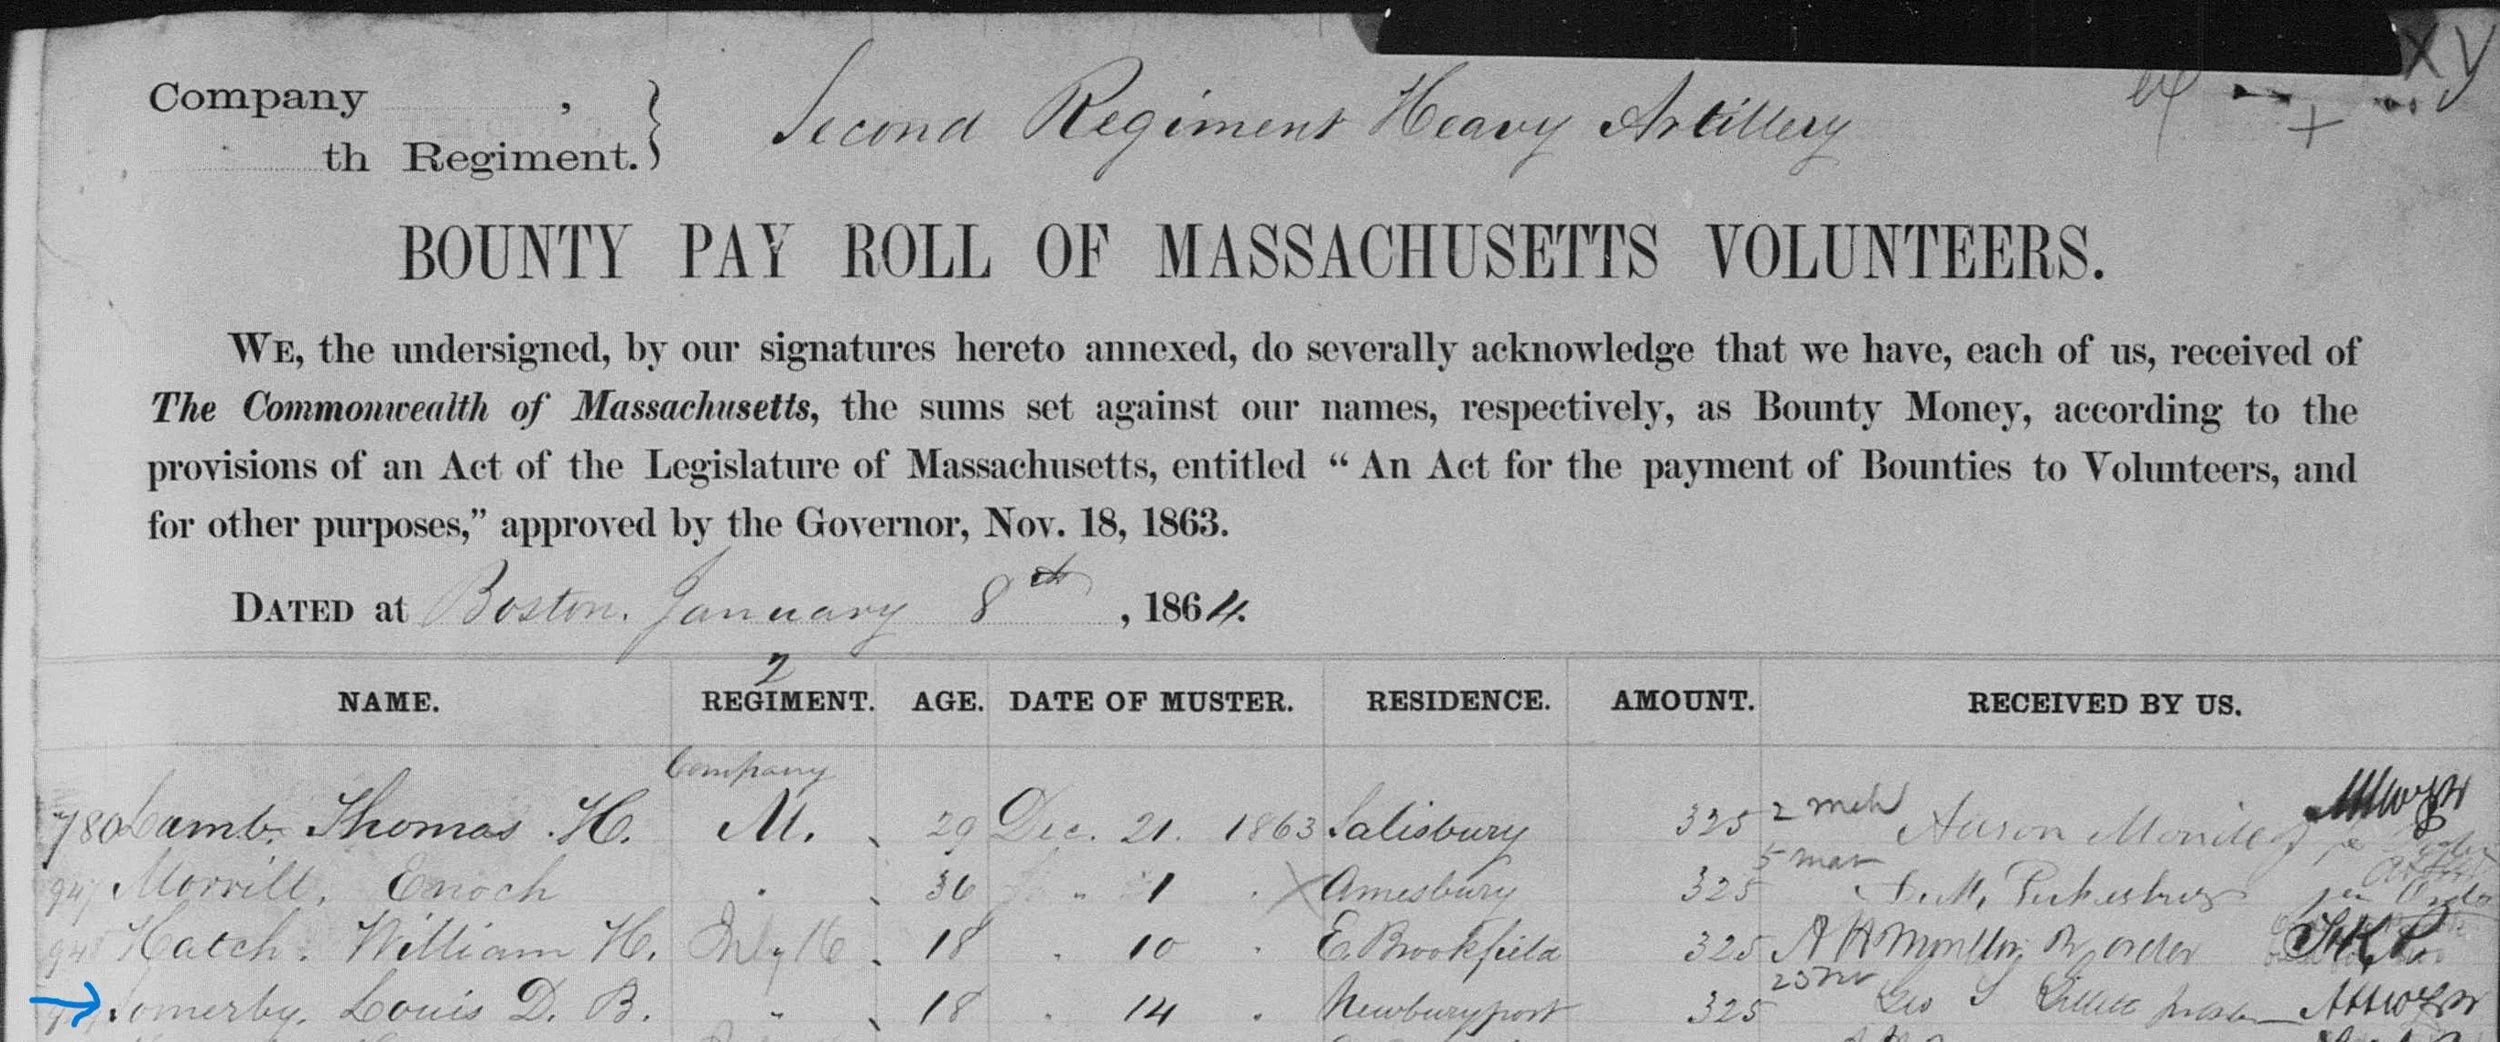 Company ,
th Regiment.
Second Regiment Heavy Artillery
BOUNTY PAY ROLL OF MASSACHUSETTS VOLUNTEERS.
WE, the undersigned, by our signatures hereto annexed, do severally acknowledge that we have, each of us, received of
The Commonwealth of Massachusetts, the sums set against our names, respectively, as Bounty Money, according to the
provisions of an Act of the Legislature of Massachusetts, entitled “ An Act for the payment of Bounties to Volunteers, and
for other purposes,” approved by the Governor, Nov. 18, 1863.
DATED at Boston. January 8th, 1864.
2
NAME. REGIMENT. AGE. DATE OF MUSTER. RESIDENCE. AMOUNT. RECEIVED BY US.
Company
780 Lamb, Thomas H. M. 29 Dec. 21. 1863 Salisbury 325
Morrill, Enoch " 36 " 1 " Amesbury 325
Hatch, William H. 18 " 10 " E. Brookfield 325
Somerby, Louis D. B. " 18 " 14 " Newburyport 325